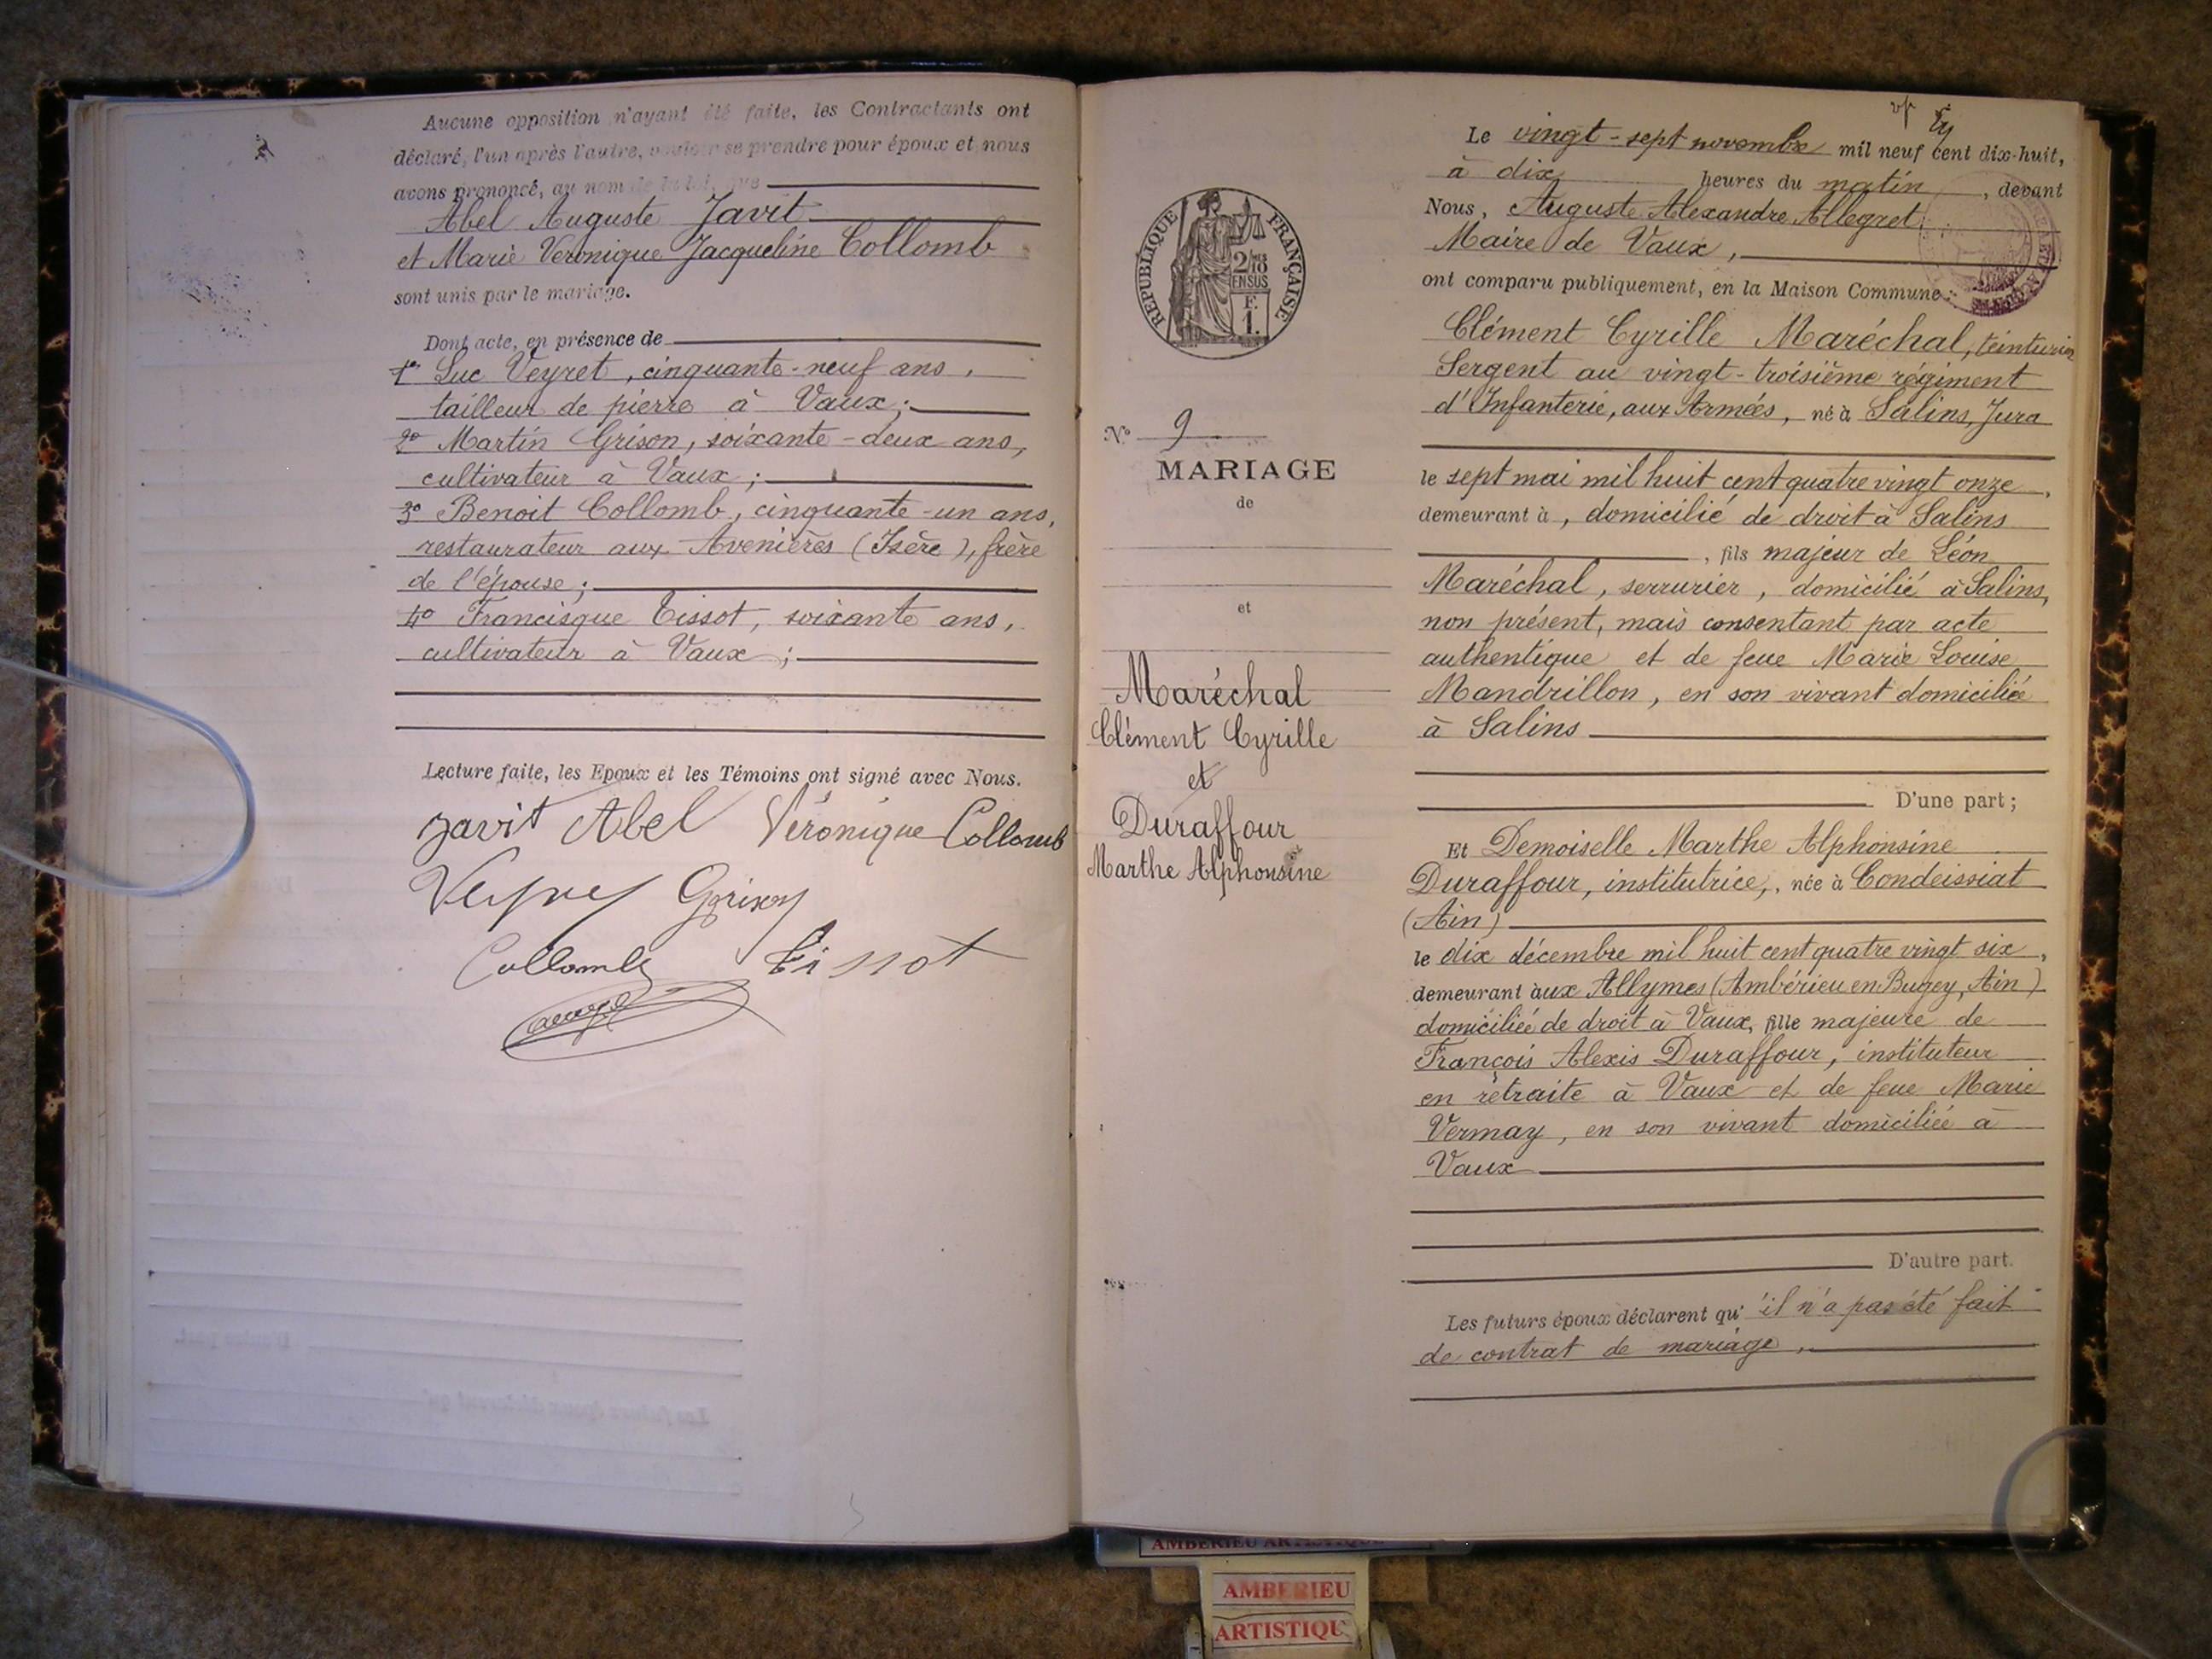 Aucune opposition n'ayant été faite, les Contractants ont
déclaré, l'un après l'autre, vouloir se prendre pour époux et nous
avons prononcé, au nom de la loi, que
Abel Auguste Javit
et Marie Véronique Jacqueline Collomb
sont unis par le mariage.
Dont acte, en présence de
1° Luc Veyret, cinquante-neuf ans,
tailleur de pierre à Vaux;
2° Martin Grison, soixante-deux ans,
cultivateur à Vaux;
3° Benoit Collomb, cinquante-un ans,
restaurateur aux Avenières (Isère), frère
de l'épouse;
4° Francisque Tissot, soixante ans,
cultivateur à Vaux;
Lecture faite, les Epoux et les Témoins ont signé avec Nous.
Javit Abel Véronique Collomb
Veyret Grison
Collomb Tissot
RÉPUBLIQUE FRANÇAISE
2/10
EN SUS
F.
1.
N° 9
MARIAGE
de
et
Maréchal
Clément Cyrille
et
Duraffour
Marthe Alphonsine
Le vingt-sept novembre mil neuf cent dix-huit,
à dix heures du matin, devant
Nous, Auguste Alexandre Allegret,
Maire de Vaux,
ont comparu publiquement, en la Maison Commune:
Clément Cyrille Maréchal, teinturier
Sergent au vingt-troisième régiment
d'Infanterie, aux Armées, né à Salins, Jura
le sept mai mil huit cent quatre vingt onze,
demeurant à, domicilié de droit à Salins
, fils majeur de Léon
Maréchal, serrurier, domicilié à Salins,
non présent, mais consentant par acte
authentique et de feue Marie Louise
Mandrillon, en son vivant domiciliée
à Salins
D'une part;
Et Demoiselle Marthe Alphonsine
Duraffour, institutrice, née à Condeissiat
(Ain)
le dix décembre mil huit cent quatre vingt six,
demeurant aux Allymes (Ambérieu en Bugey, Ain)
domiciliée de droit à Vaux, fille majeure de
François Alexis Duraffour, instituteur
en retraite à Vaux et de feue Marie
Vermay, en son vivant domiciliée à
Vaux
D'autre part.
Les futurs époux déclarent qu'il n'a pas été fait
de contrat de mariage.
AMBERIEU ARTISTIQUE
AMBERIEU
ARTISTIQU